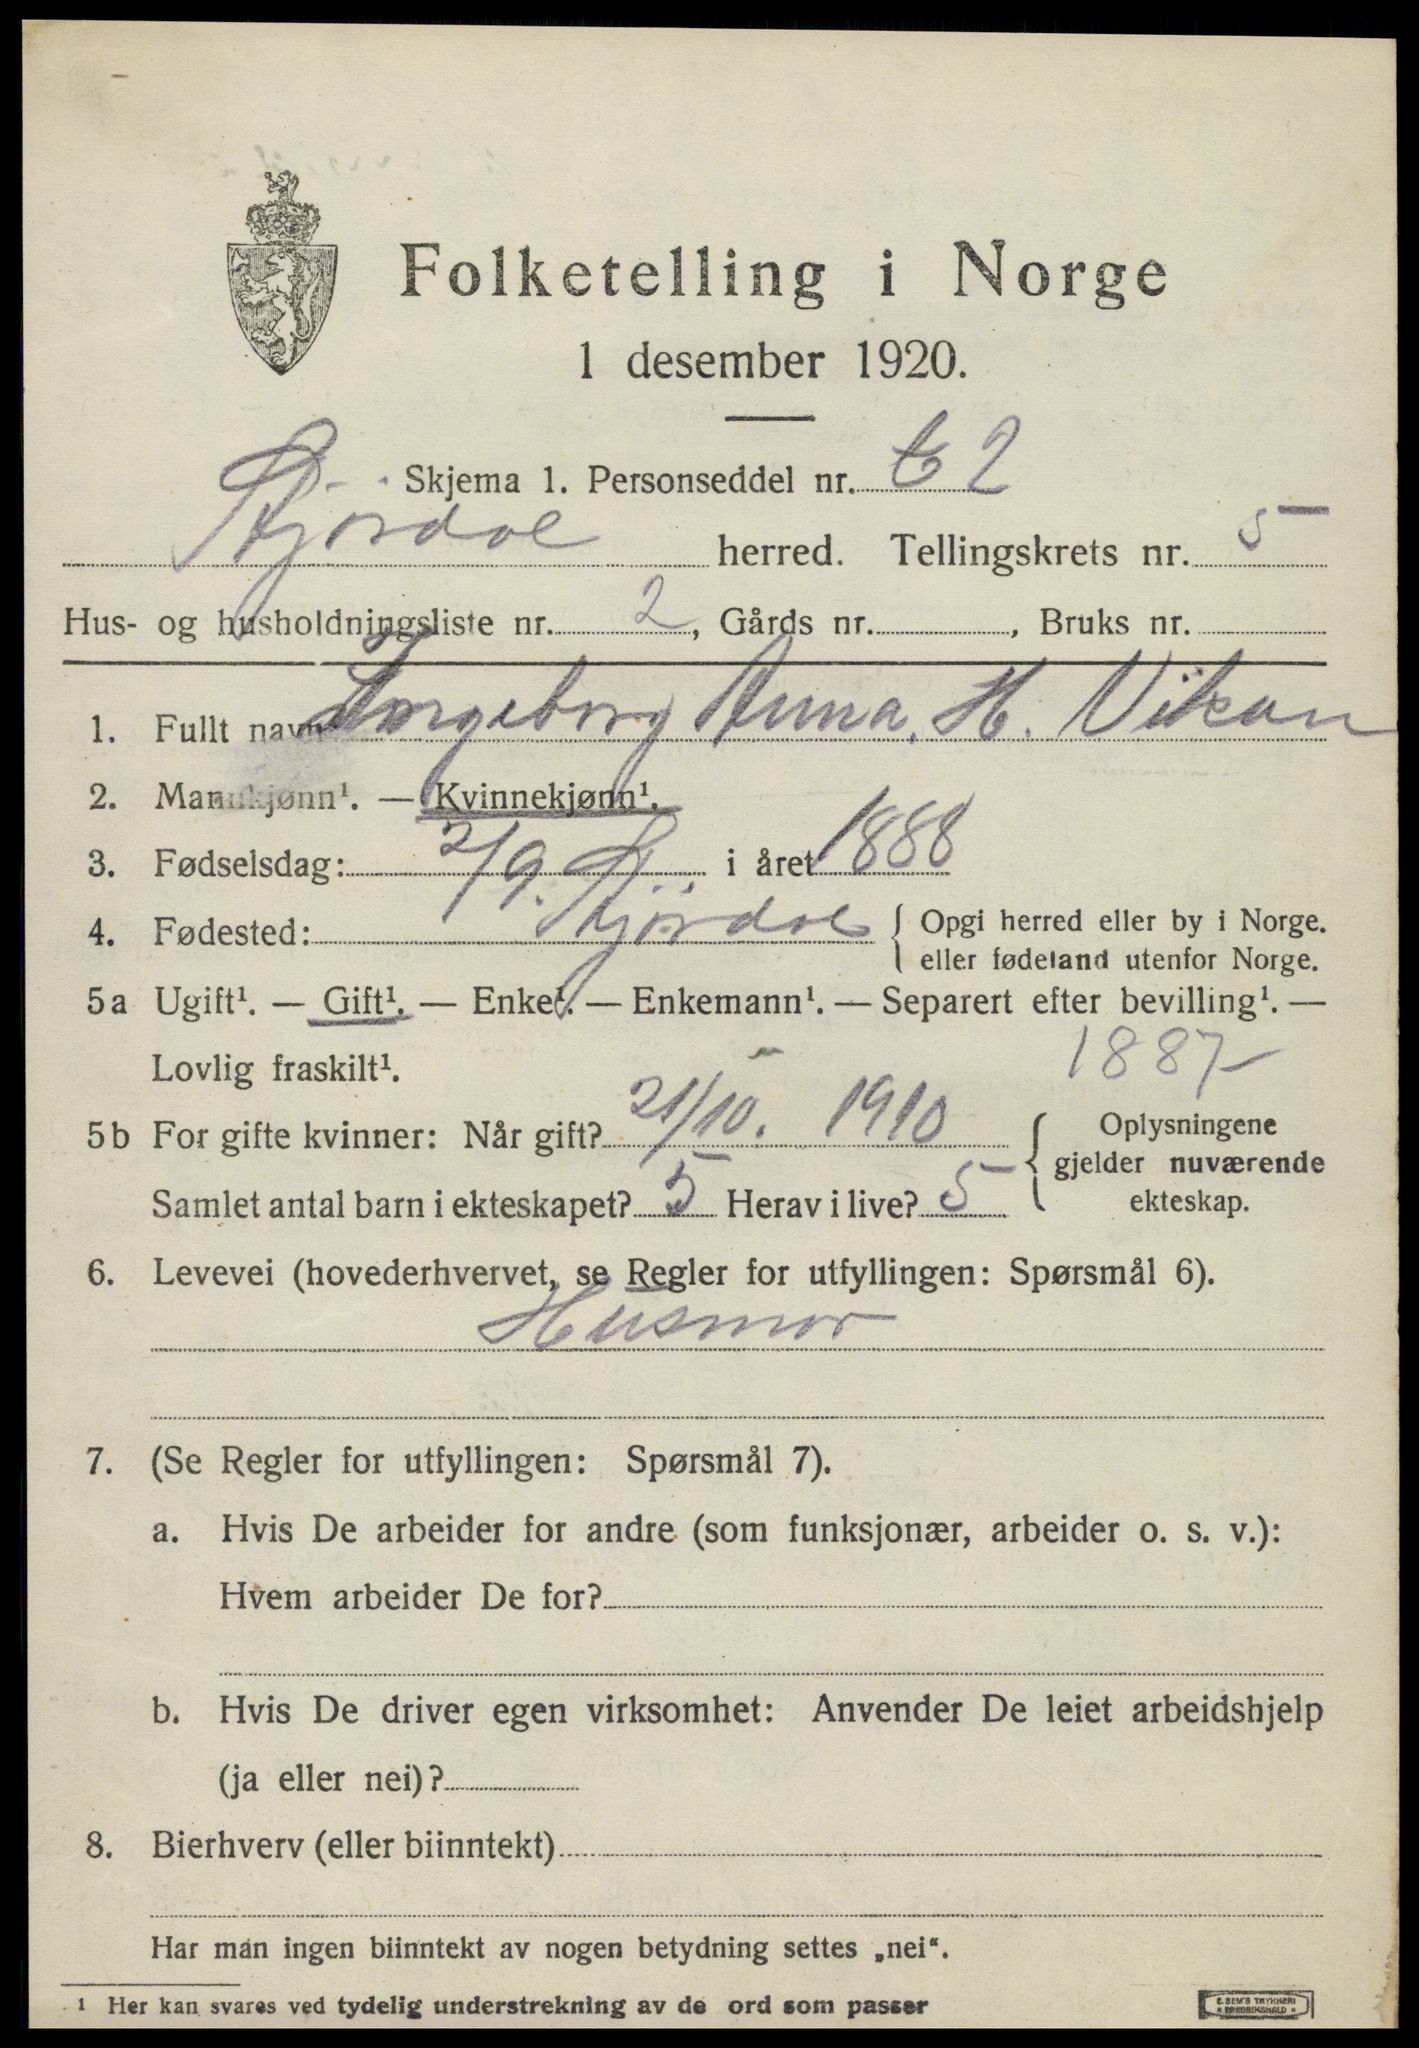 Folketelling i Norge
1 desember 1920.
Skjema 1. Personseddel nr. 2
Stjørdal herred. Tellingskrets nr. 5
Hus- og husholdningsliste nr. 2, Gårds nr. , Bruks nr.
1. Fullt navn Ingeborg Anna. H. Vikan
2. Mannkjønn¹. — Kvinnekjønn¹.
3. Fødselsdag: 2/9. i året 1888
4. Fødested: Stjørdal { Opgi herred eller by i Norge.
eller fødeland utenfor Norge.
5a Ugift¹. — Gift¹. — Enke¹. — Enkemann¹. — Separert efter bevilling¹. —
Lovlig fraskilt¹. 1887
5b For gifte kvinner: Når gift? 21/10. 1910 { Oplysningene
gjelder nuværende
ekteskap.
Samlet antal barn i ekteskapet? 5 Herav i live? 5
6. Levevei (hovederhvervet, se Regler for utfyllingen: Spørsmål 6).
Husmor
7. (Se Regler for utfyllingen: Spørsmål 7).
a. Hvis De arbeider for andre (som funksjonær, arbeider o. s. v.):
Hvem arbeider De for?
b. Hvis De driver egen virksomhet: Anvender De leiet arbeidshjelp
(ja eller nei)?
8. Bierhverv (eller biinntekt)
Har man ingen biinntekt av nogen betydning settes „nei“.
¹ Her kan svares ved tydelig understrekning av de ord som passer
E. SEM'S TRYKKERI
FREDRIKSHALD